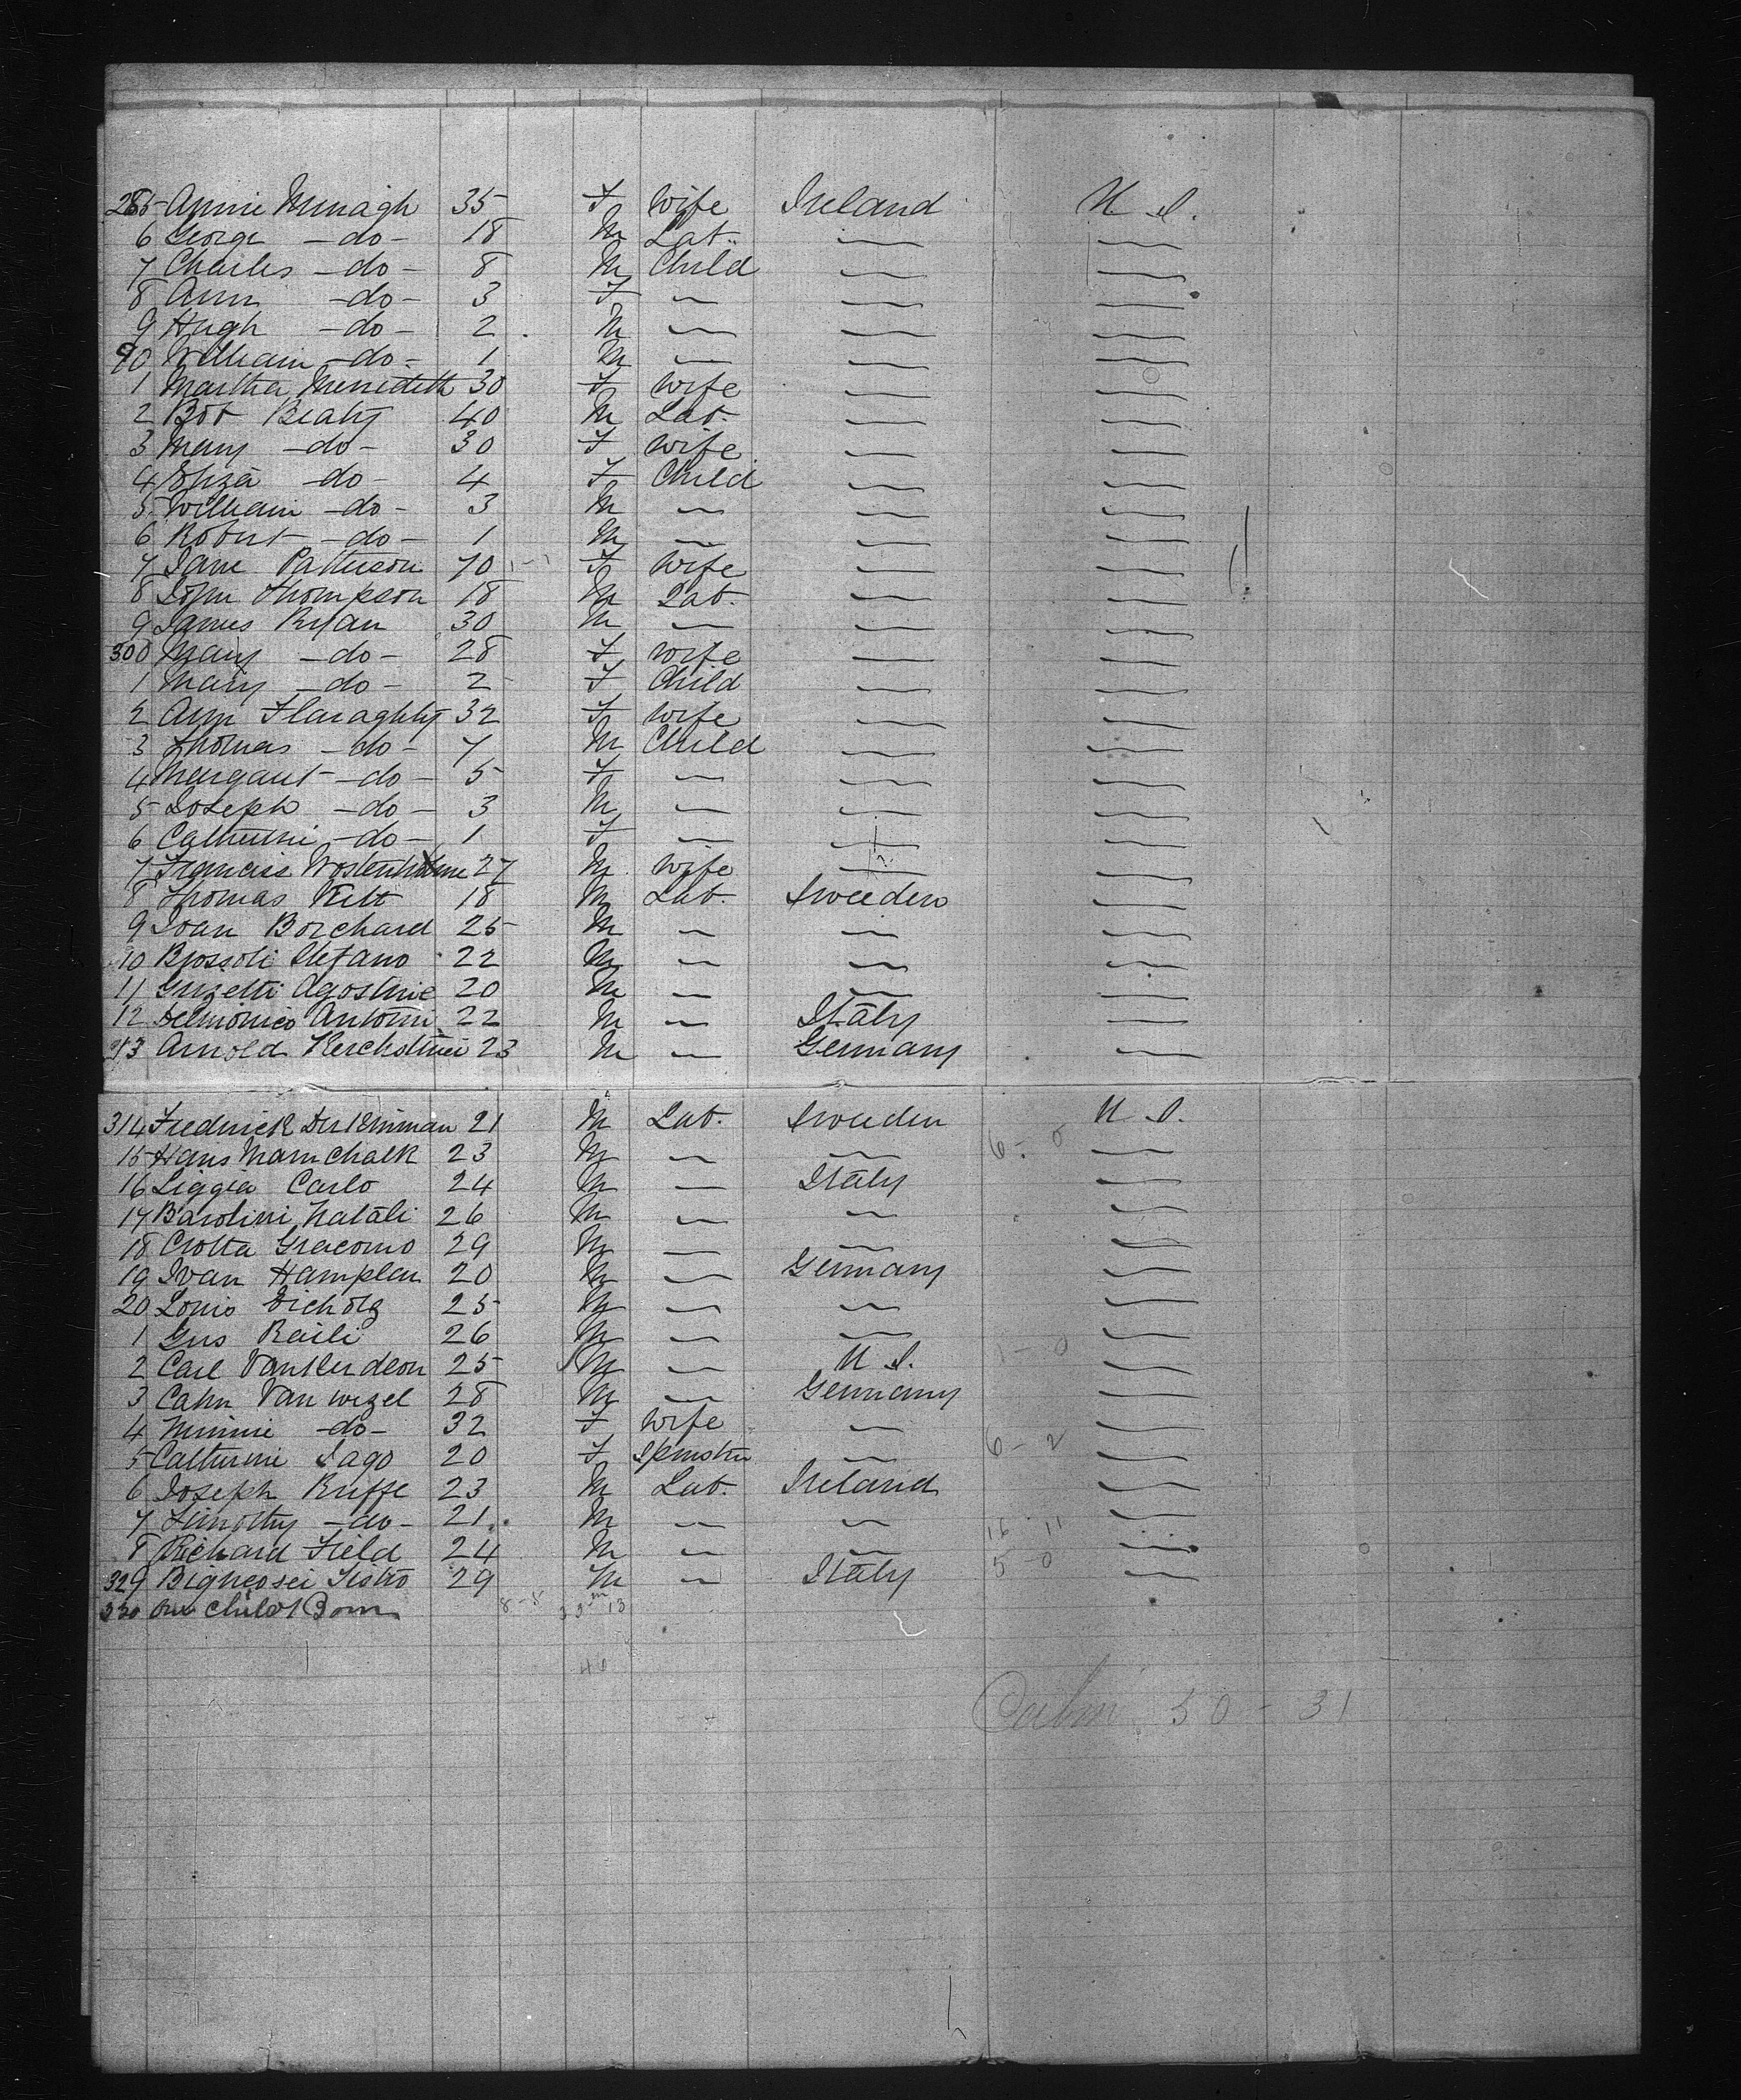 285 Annie Menagh 35 F Wife Ireland U.S.
6 George -do- 18 M Lab. — —
7 Charles -do- 8 M Child — —
8 Ann -do- 3 F — — —
9 Hugh -do- 2 M — — —
90 William -do- 1 M — — —
1 Martha Merideth 30 F Wife — —
2 Bob Beaty 40 M Lab. — —
3 Mary -do- 30 F Wife — —
4 Eliza -do- 4 F Child — —
5 William -do- 3 M — — —
6 Robert -do- 1 M — — —
7 Jane Patterson 70 F Wife — —
8 John Thompson 18 M Lab. — —
9 James Ryan 30 M — — —
300 Mary -do- 28 F Wife — —
1 Mary -do- 2 F Child — —
2 Ann Flaraghty 32 F Wife — —
3 Thomas -do- 7 M Child — —
4 Margaret -do- 5 F — — —
5 Joseph -do- 3 M — — —
6 Catherine -do- 1 F — — —
7 Francis Wostenholme 27 M Wife — —
8 Thomas 18 M Lab. Sweeden —
9 Ivan Borchard 25 M — — —
10 Stefano 22 M — — —
11 Agostine 20 M — — —
12 Delmonico Antoni 22 M — Italy —
313 Arnold 23 M — Germany —
314 Fredrick 21 M Lab. Sweeden U.S.
15 Hans Mamchalk 23 M — — 6 - 0 —
16 Liggia Carlo 24 M — Italy —
17 Barolini Natali 26 M — — —
18 Crotta Giacomo 29 M — — —
19 Ivan Hamplen 20 M — Germany —
20 Louis Eicholz 25 M — — —
1 Gus Raili 26 M — — —
2 Carl 25 M — U.S. 1 - 0 —
3 Cahn Van wezel 28 M — Germany —
4 Minnie -do- 32 F Wife — —
5 Catherine Sago 20 F Spinster — 6 - 2 —
6 Joseph Ruffe 23 M Lab. Ireland —
7 Timothy -do- 21 M — — —
8 Richard Field 24 M — — 16 11 —
329 29 M — Italy 5 0 —
330 One Child Born 8-5 33 m 13
46
Cabin 50 - 31